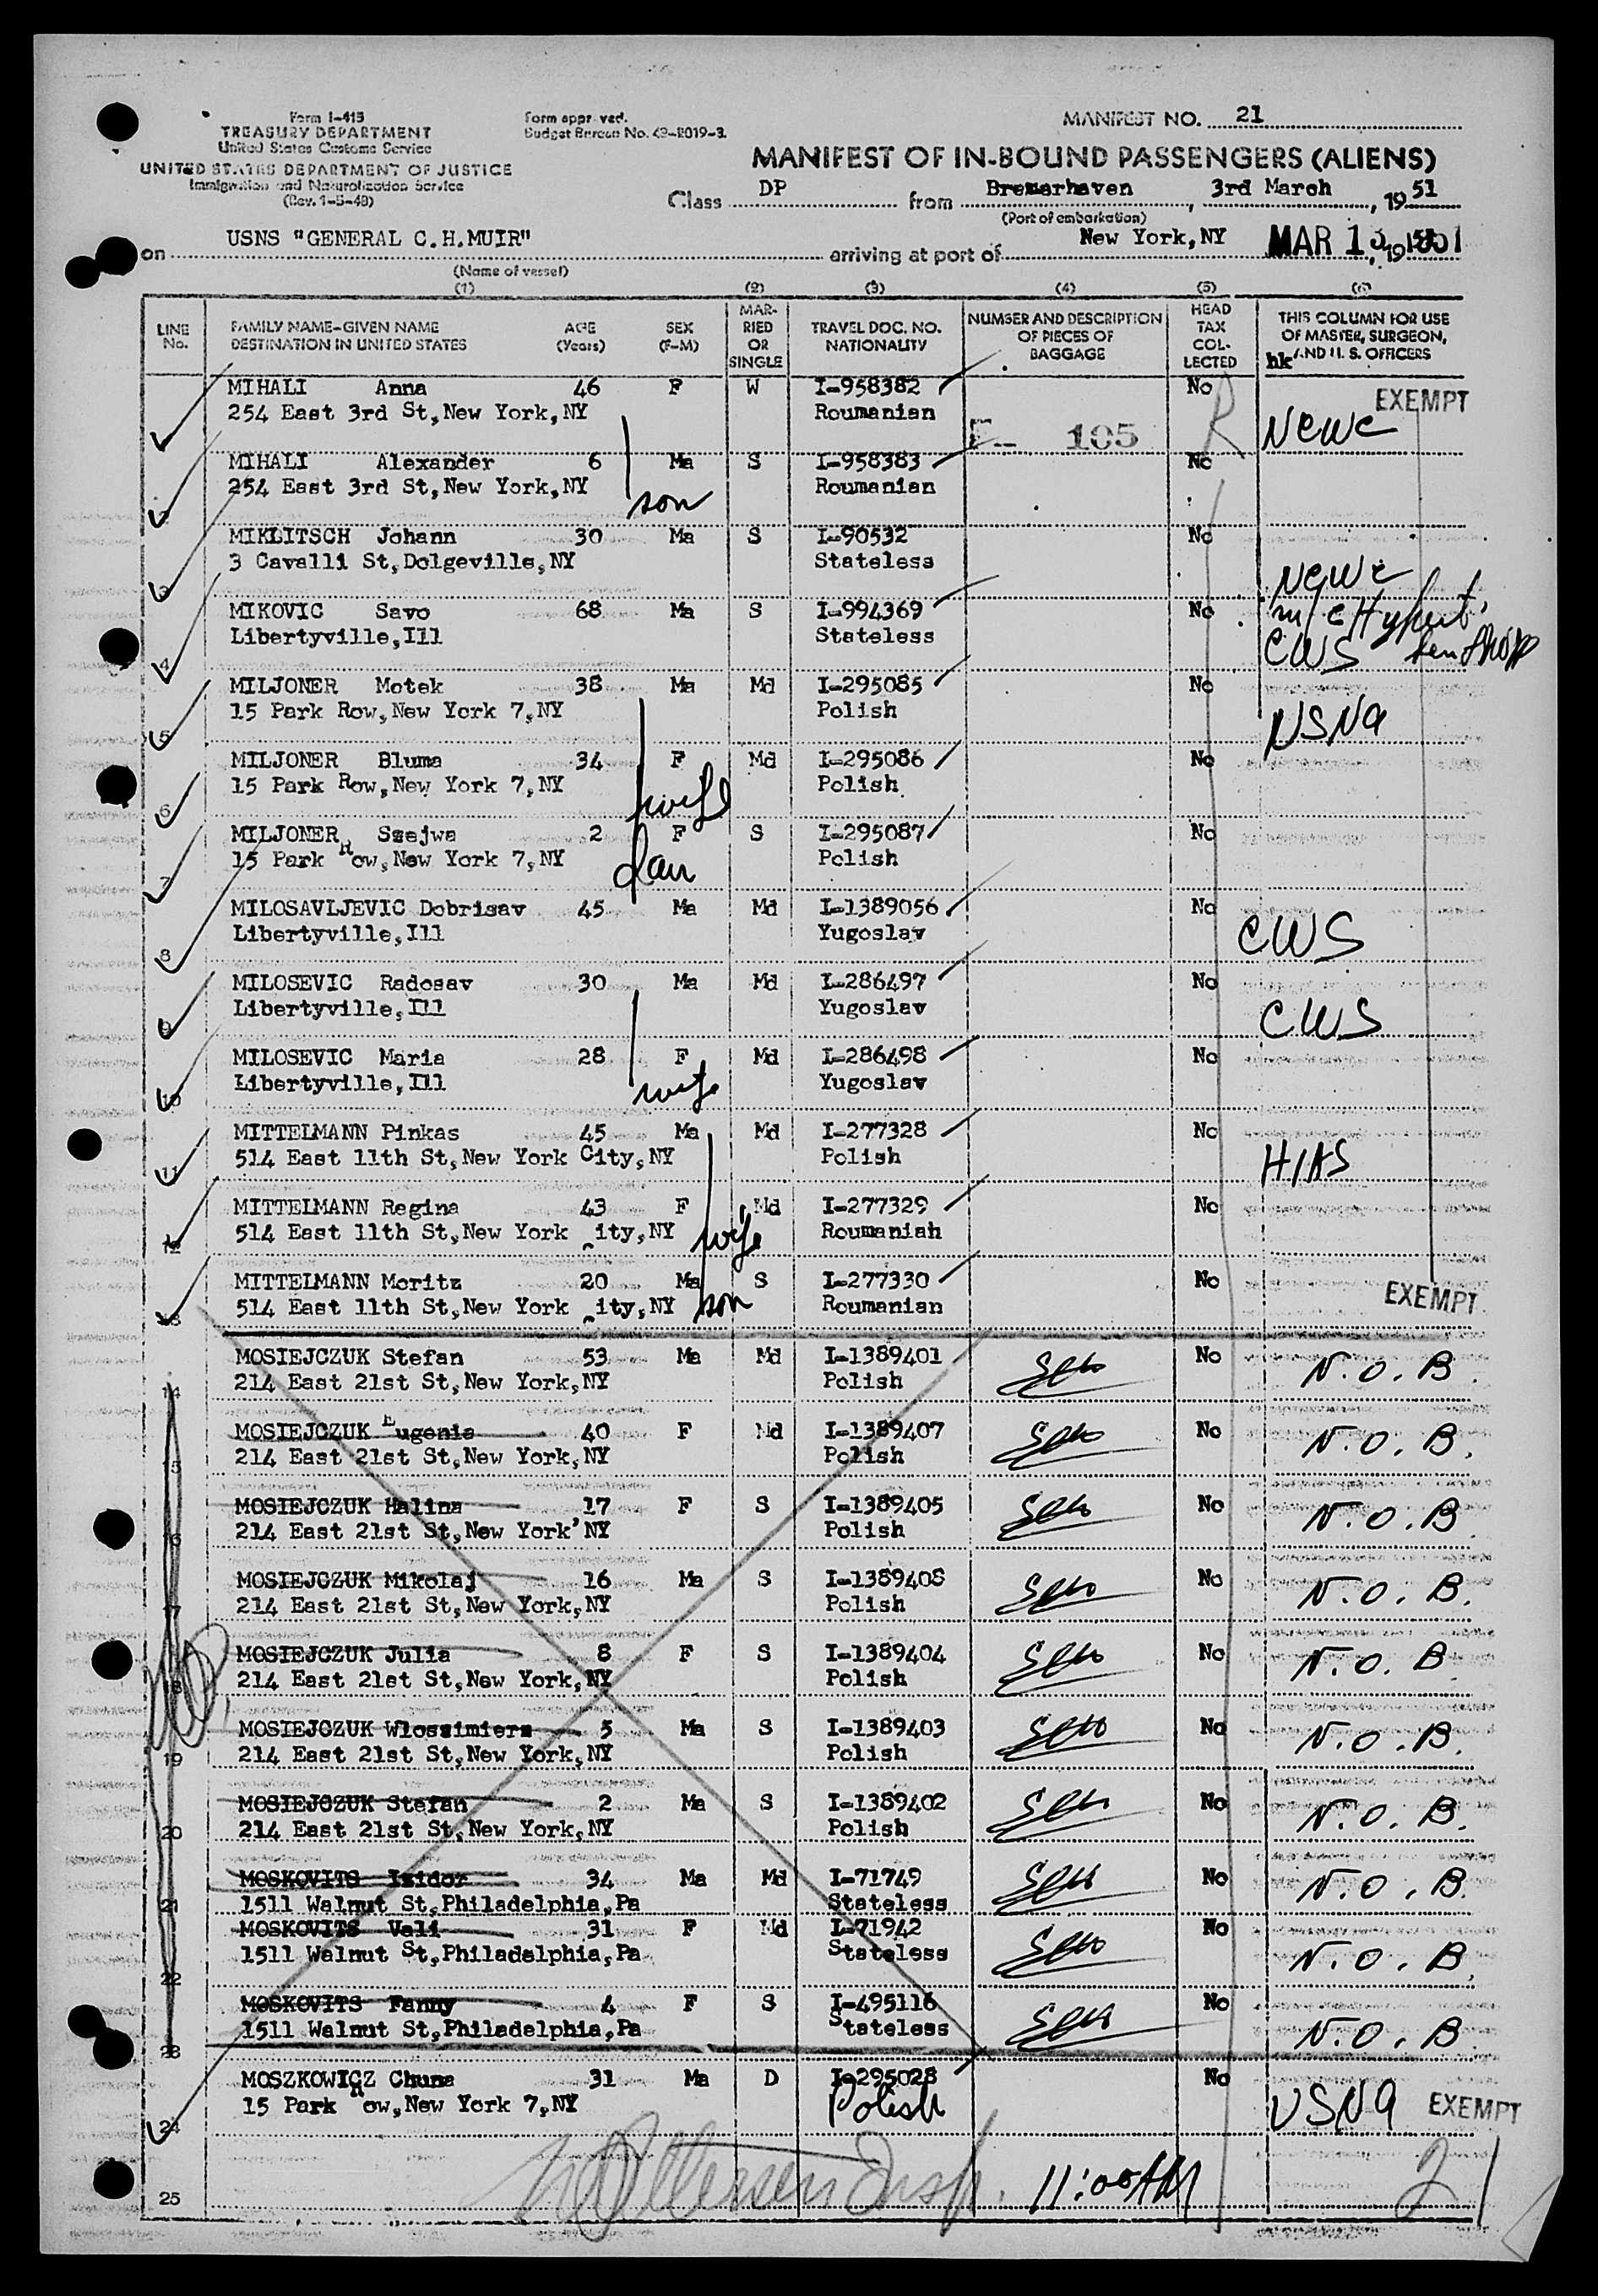 Form I-415
TREASURY DEPARTMENT
United States Customs Service
UNITED STATES DEPARTMENT OF JUSTICE
Immigration and Naturalization Service
(Rev. 1-5-48)
Form approved.
Budget Bureau No. 43-R019-3.
MANIFEST NO. 21
MANIFEST OF IN-BOUND PASSENGERS (ALIENS)
Class DP from Bremerhaven, 3rd March, 1951
(Port of embarkation)
on USNS "GENERAL C.H.MUIR" arriving at port of New York, NY MAR 13 1951
(Name of vessel)
(1) (2) (3) (4) (5) (6)
LINE No. FAMILY NAME—GIVEN NAME DESTINATION IN UNITED STATES AGE (Years) SEX (F-M) MARRIED OR SINGLE TRAVEL DOC. NO. NATIONALITY NUMBER AND DESCRIPTION OF PIECES OF BAGGAGE HEAD TAX COLLECTED THIS COLUMN FOR USE OF MASTER, SURGEON, AND U. S. OFFICERS
hk
MIHALI Anna 46 F W I-958382 No EXEMPT
254 East 3rd St,New York,NY Roumanian 105 NCWC
MIHALI Alexander 6 Ma S I-958383 No
2 254 East 3rd St,New York,NY son Roumanian
MIKLITSCH Johann 30 Ma S I-90532 No
3 3 Cavalli St,Dolgeville,NY Stateless NCWC
MIKOVIC Savo 68 Ma S I-994369 No
4 Libertyville,Ill Stateless CWS
MILJONER Motek 38 Ma Md I-295085 No
5 15 Park Row,New York 7,NY Polish USNA
MILJONER Bluma 34 F Md I-295086 No
6 15 Park Row,New York 7,NY wife Polish
MILJONER Szejwa 2 F S I-295087 No
7 15 Park Row,New York 7,NY dau Polish
MILOSAVLJEVIC Dobrisav 45 Ma Md I-1389056 No
8 Libertyville,Ill Yugoslav CWS
MILOSEVIC Radosav 30 Ma Md I-286497 No
9 Libertyville,Ill Yugoslav CWS
MILOSEVIC Maria 28 F Md I-286498 No
10 Libertyville,Ill wife Yugoslav
MITTELMANN Pinkas 45 Ma Md I-277328 No
11 514 East 11th St,New York City,NY Polish HIAS
MITTELMANN Regina 43 F Md I-277329 No
12 514 East 11th St,New York ity,NY wife Roumanian
MITTELMANN Moritz 20 Ma S I-277330 No
13 514 East 11th St,New York ity,NY son Roumanian EXEMPT
MOSIEJCZUK Stefan 53 Ma Md I-1389401 No N.O.B.
14 214 East 21st St,New York,NY Polish
MOSIEJCZUK Eugenia 40 F Md I-1389407 No N.O.B.
15 214 East 21st St,New York,NY Polish
MOSIEJCZUK Halina 17 F S I-1389405 No N.O.B.
16 214 East 21st St,New York'NY Polish
MOSIEJCZUK Mikolaj 16 Ma S I-1389408 No N.O.B.
17 214 East 21st St,New York,NY Polish
MOSIEJCZUK Julia 8 F S I-1389404 No N.O.B
18 214 East 21st St,New York,NY Polish
MOSIEJCZUK Wloszimierz 5 Ma S I-1389403 No N.O.B.
19 214 East 21st St,New York,NY Polish
MOSIEJCZUK Stefan 2 Ma S I-1389402 No N.O.B.
20 214 East 21st St,New York,NY Polish
MOSKOVITS Izidor 34 Ma Md I-71749 No N.O.B.
21 1511 Walnut St,Philadelphia,Pa Stateless
MOSKOVITS Vali 31 F Md I-71942 No N.O.B.
22 1511 Walnut St,Philadelphia,Pa Stateless
MOSKOVITS Fanny 4 F S I-495116 No N.O.B
23 1511 Walnut St,Philadelphia,Pa Stateless
MOSZKOWICZ Chuna 31 Ma D I-295028 No
24 15 Park Row,New York 7,NY Polish USNA EXEMPT
25 Insp. 11:00AM 21